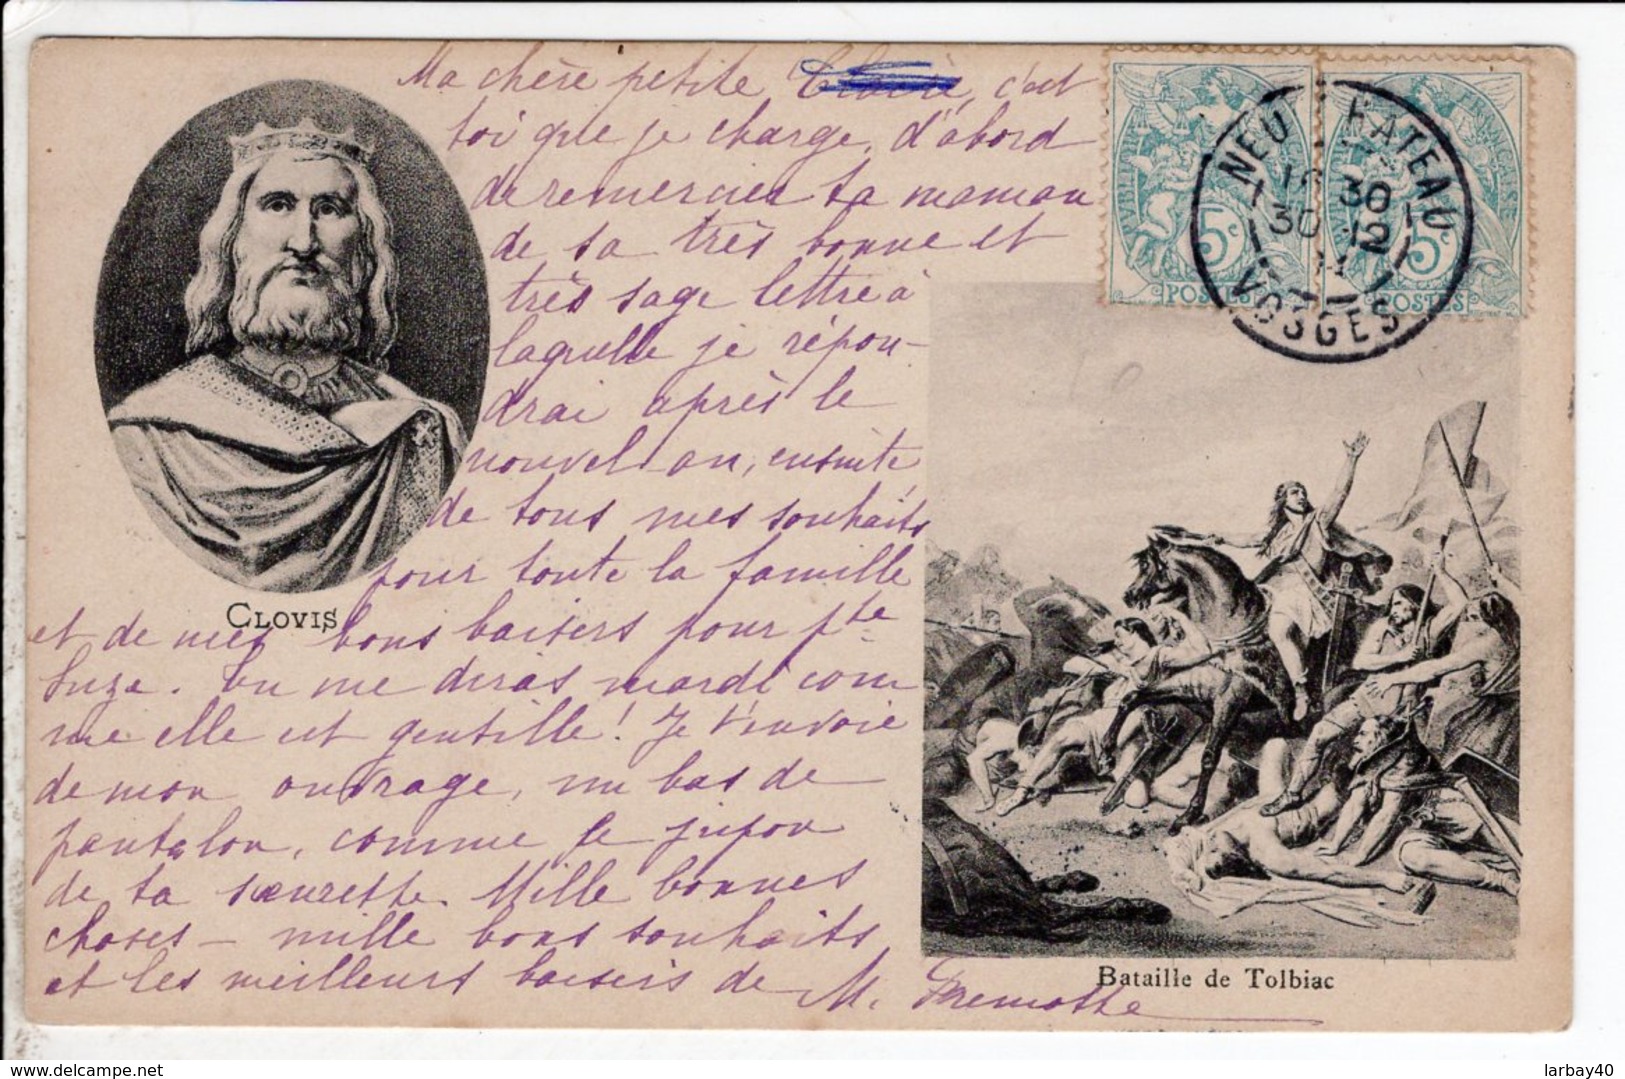 Ma chère petite c'est
toi que je charge, d'abord
de remercier ta maman
de sa très bonne et
très sage lettre à
laquelle je répon-
drai après le
nouvel an, ensuite,
de tous mes souhaits
pour toute la famille
et de mes bons baisers pour pte
Suze. Tu me diras mardi com
me elle est gentille! Je t'envoie
de mon ouvrage, un bas de
pantalon, comme le jupon
de ta sœurette. Mille bonnes
choses — mille bons souhaits
et les meilleurs baisers de M.
CLOVIS
RÉPUBLIQUE FRANÇAISE
5c
POSTES
5c
POSTES
NEUFCHATEAU
30
30 12
VOSGES
Bataille de Tolbiac
delcampe.net
larbay40